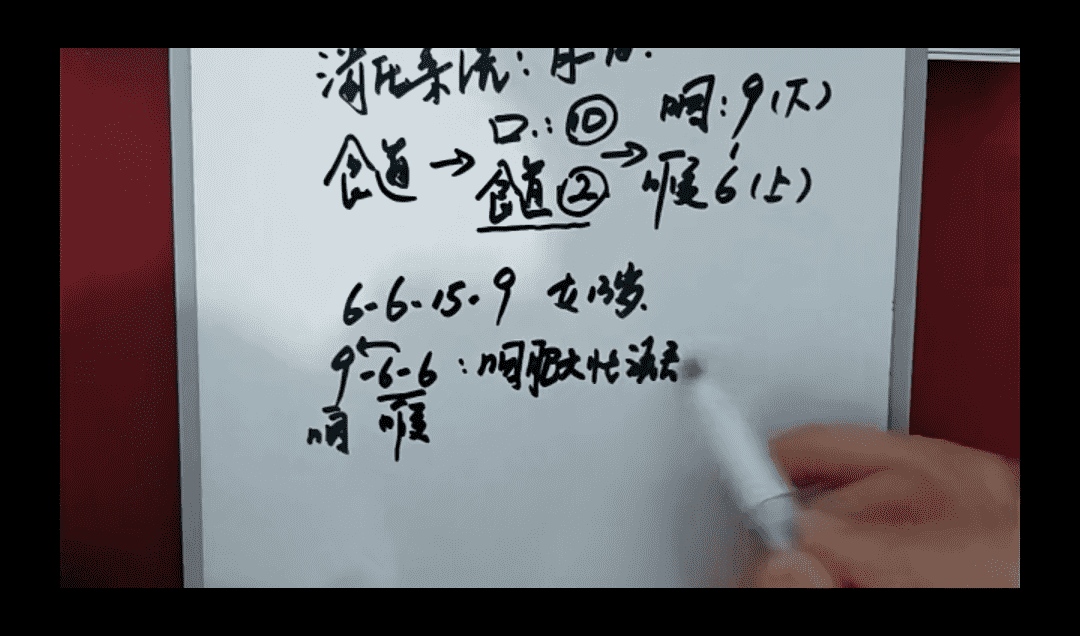 消化系统:
口:⑩ 咽:9(下)
食道 → 食道② → 喉6(上)
6-6-15-9 女13岁.
9-6-6:咽肥大性
咽 喉